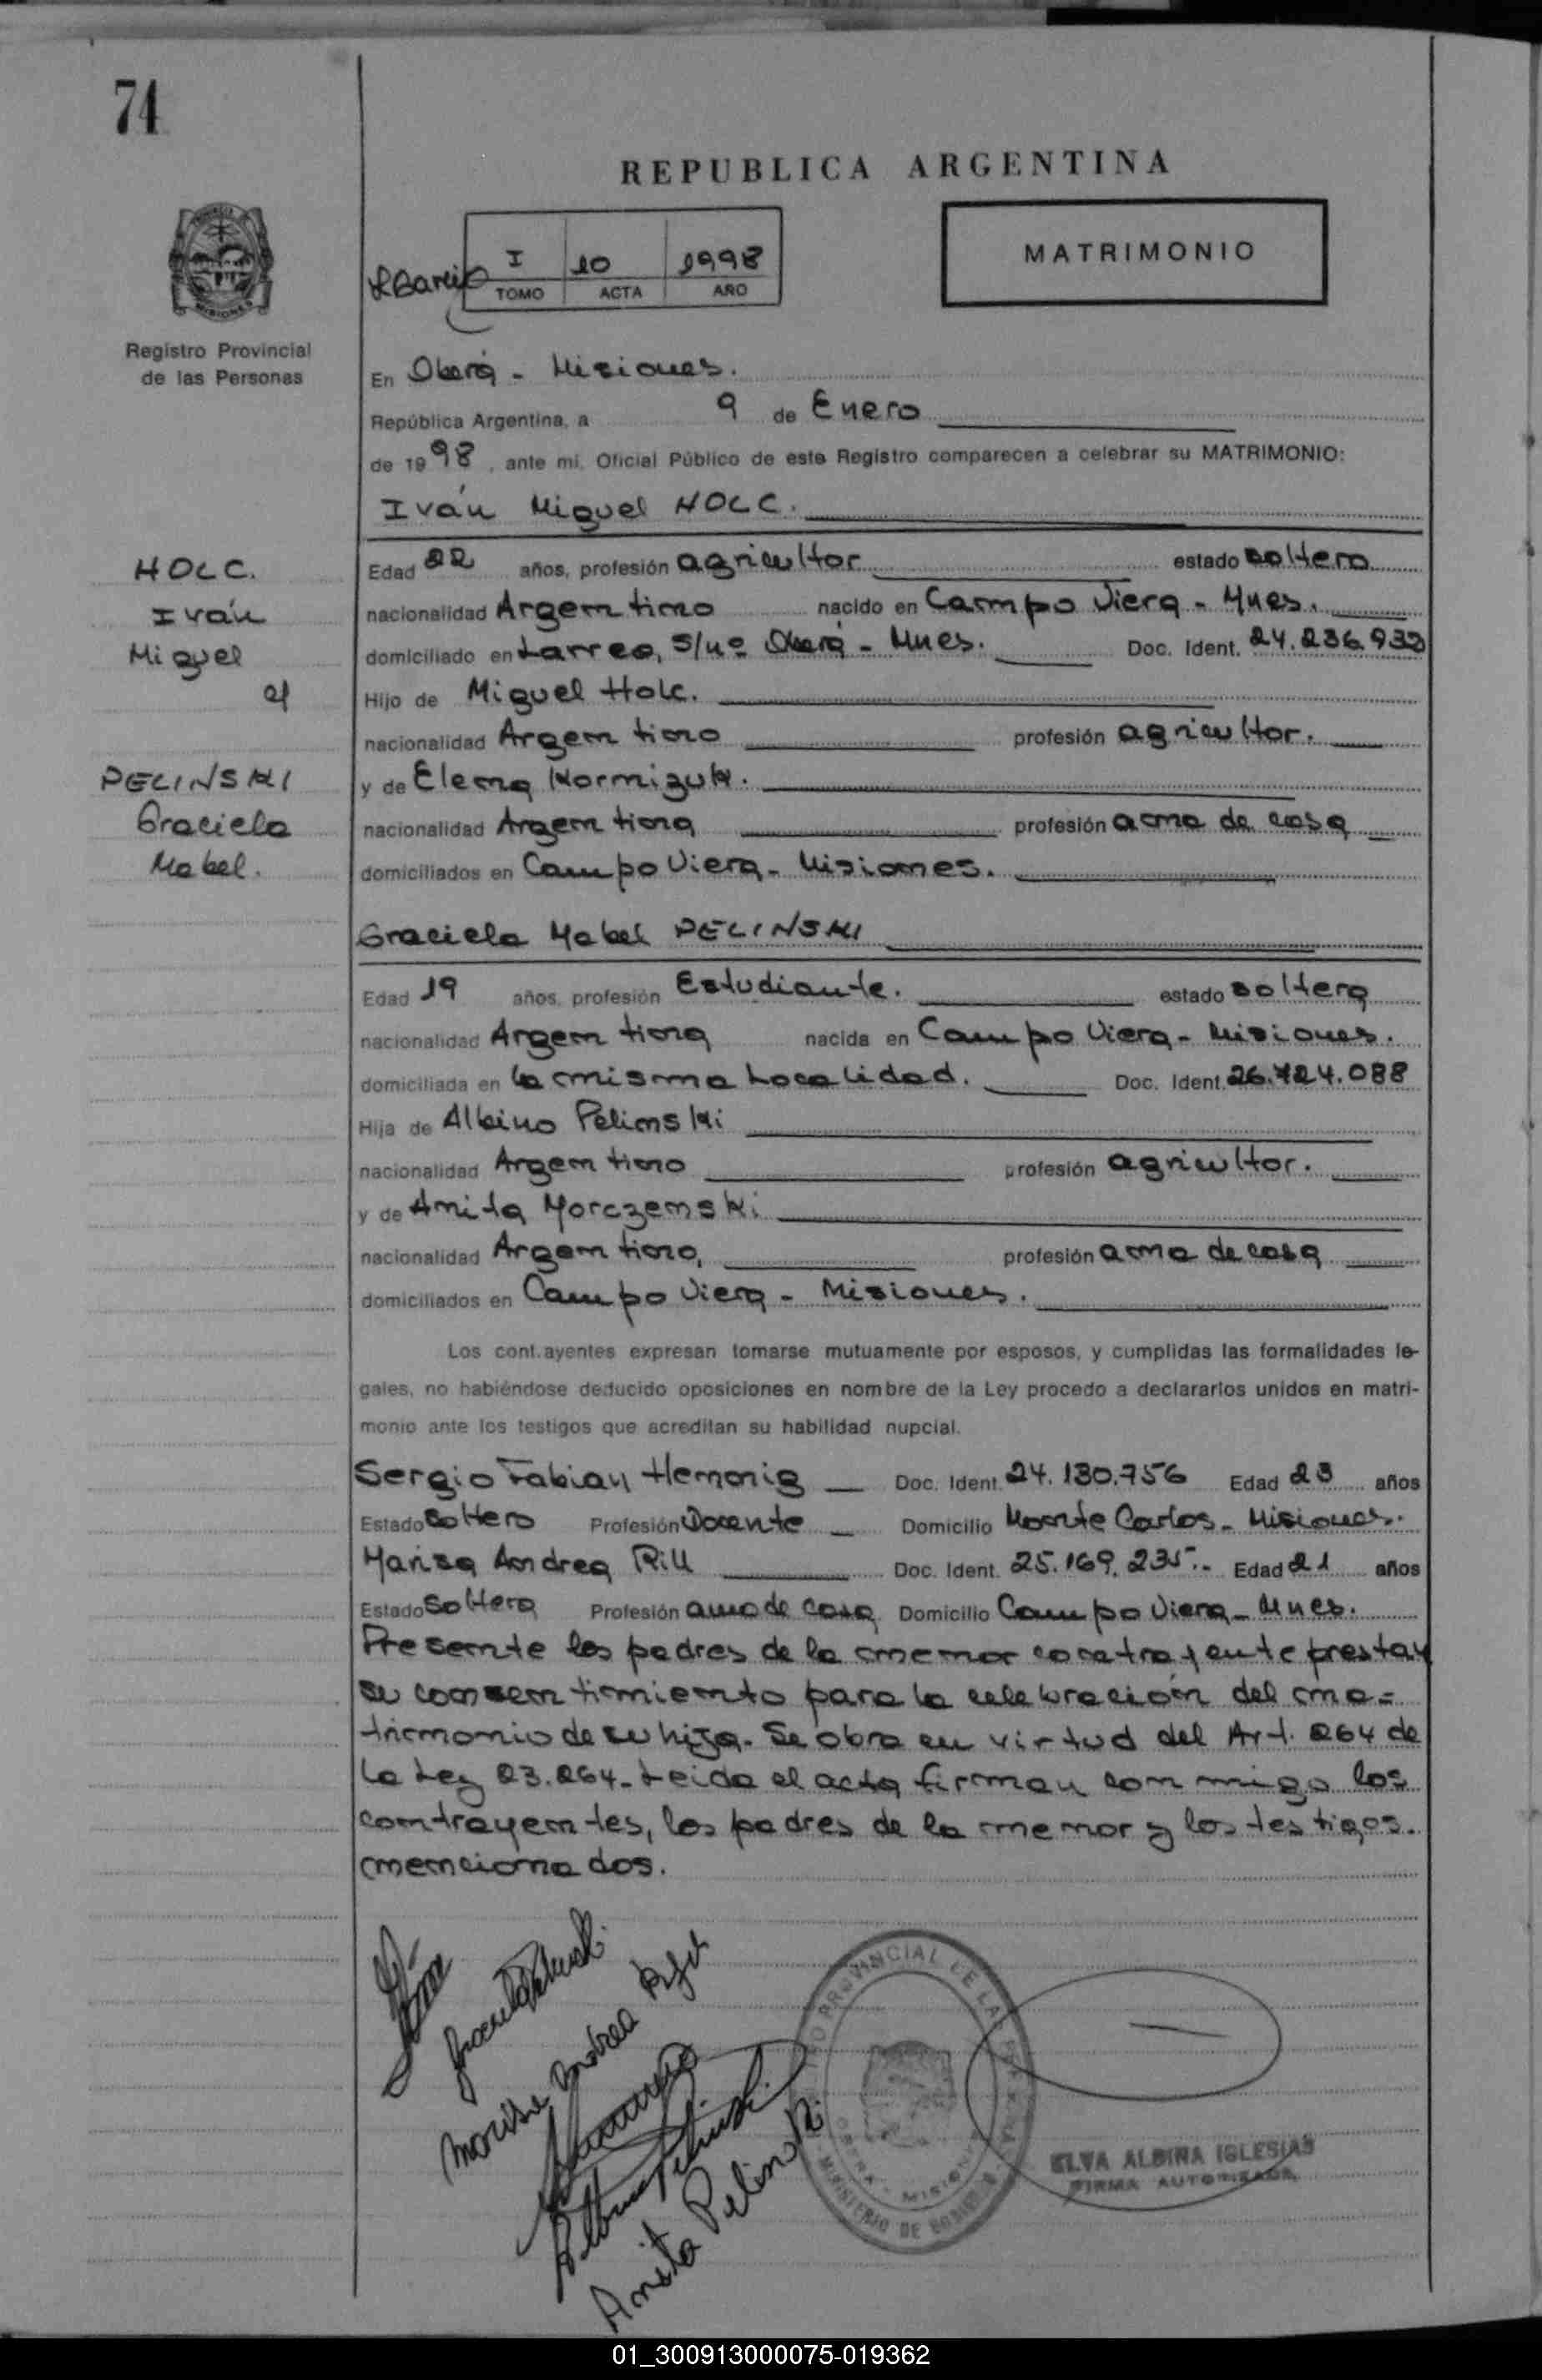 74
REPUBLICA ARGENTINA
I 10 1998
TOMO ACTA AÑO
MATRIMONIO
Registro Provincial
de las Personas
En Oberá - Misiones.
República Argentina, a 9 de Enero
de 1998, ante mi, Oficial Público de este Registro comparecen a celebrar su MATRIMONIO:
Iván Miguel HOLC.
HOLC.
Iván
Miguel
PELINSKI
Graciela
Mabel.
Edad 22 años, profesión agricultor estado soltero
nacionalidad Argentino nacido en Campo Viera - Mnes.
domiciliado en Larrea, S/nº Oberá - Mnes. Doc. Ident. 24.236.932
Hijo de Miguel Holc.
nacionalidad Argentino profesión agricultor.
y de Elena Kormizuk.
nacionalidad Argentina profesión ama de casa
domiciliados en Campo Viera - Misiones.
Graciela Mabel PELINSKI
Edad 19 años, profesión Estudiante. estado soltera
nacionalidad Argentina nacida en Campo Viera - Misiones.
domiciliada en la misma Localidad. Doc. Ident. 26.724.088
Hija de Albino Pelinski
nacionalidad Argentino profesión agricultor.
y de Anita Morczenski
nacionalidad Argentina, profesión ama de casa
domiciliados en Campo Viera - Misiones.
Los cont.ayentes expresan tomarse mutuamente por esposos, y cumplidas las formalidades le-
gales, no habiéndose deducido oposiciones en nombre de la Ley procedo a declararlos unidos en matri-
monio ante los testigos que acreditan su habilidad nupcial.
Sergio Fabian Hennig Doc. Ident. 24.130.756 Edad 23 años
Estado Soltero Profesión Docente Domicilio Monte Carlos - Misiones.
Marisa Andrea Rill Doc. Ident. 25.169.235.- Edad 21 años
Estado Soltera Profesión ama de casa Domicilio Campo Viera - Mnes.
Presente los padres de la menor contrayente prestan
su consentimiento para la celebración del ma=
trimonio de su hija. Se obra en virtud del Art. 264 de
la Ley 23.264 - Leida el acta firman conmigo los
contrayentes, los padres de la menor y los testigos
mencionados.
Anita Pelinski
ELVA ALBINA IGLESIAS
FIRMA AUTORIZADA
01_300913000075-019362